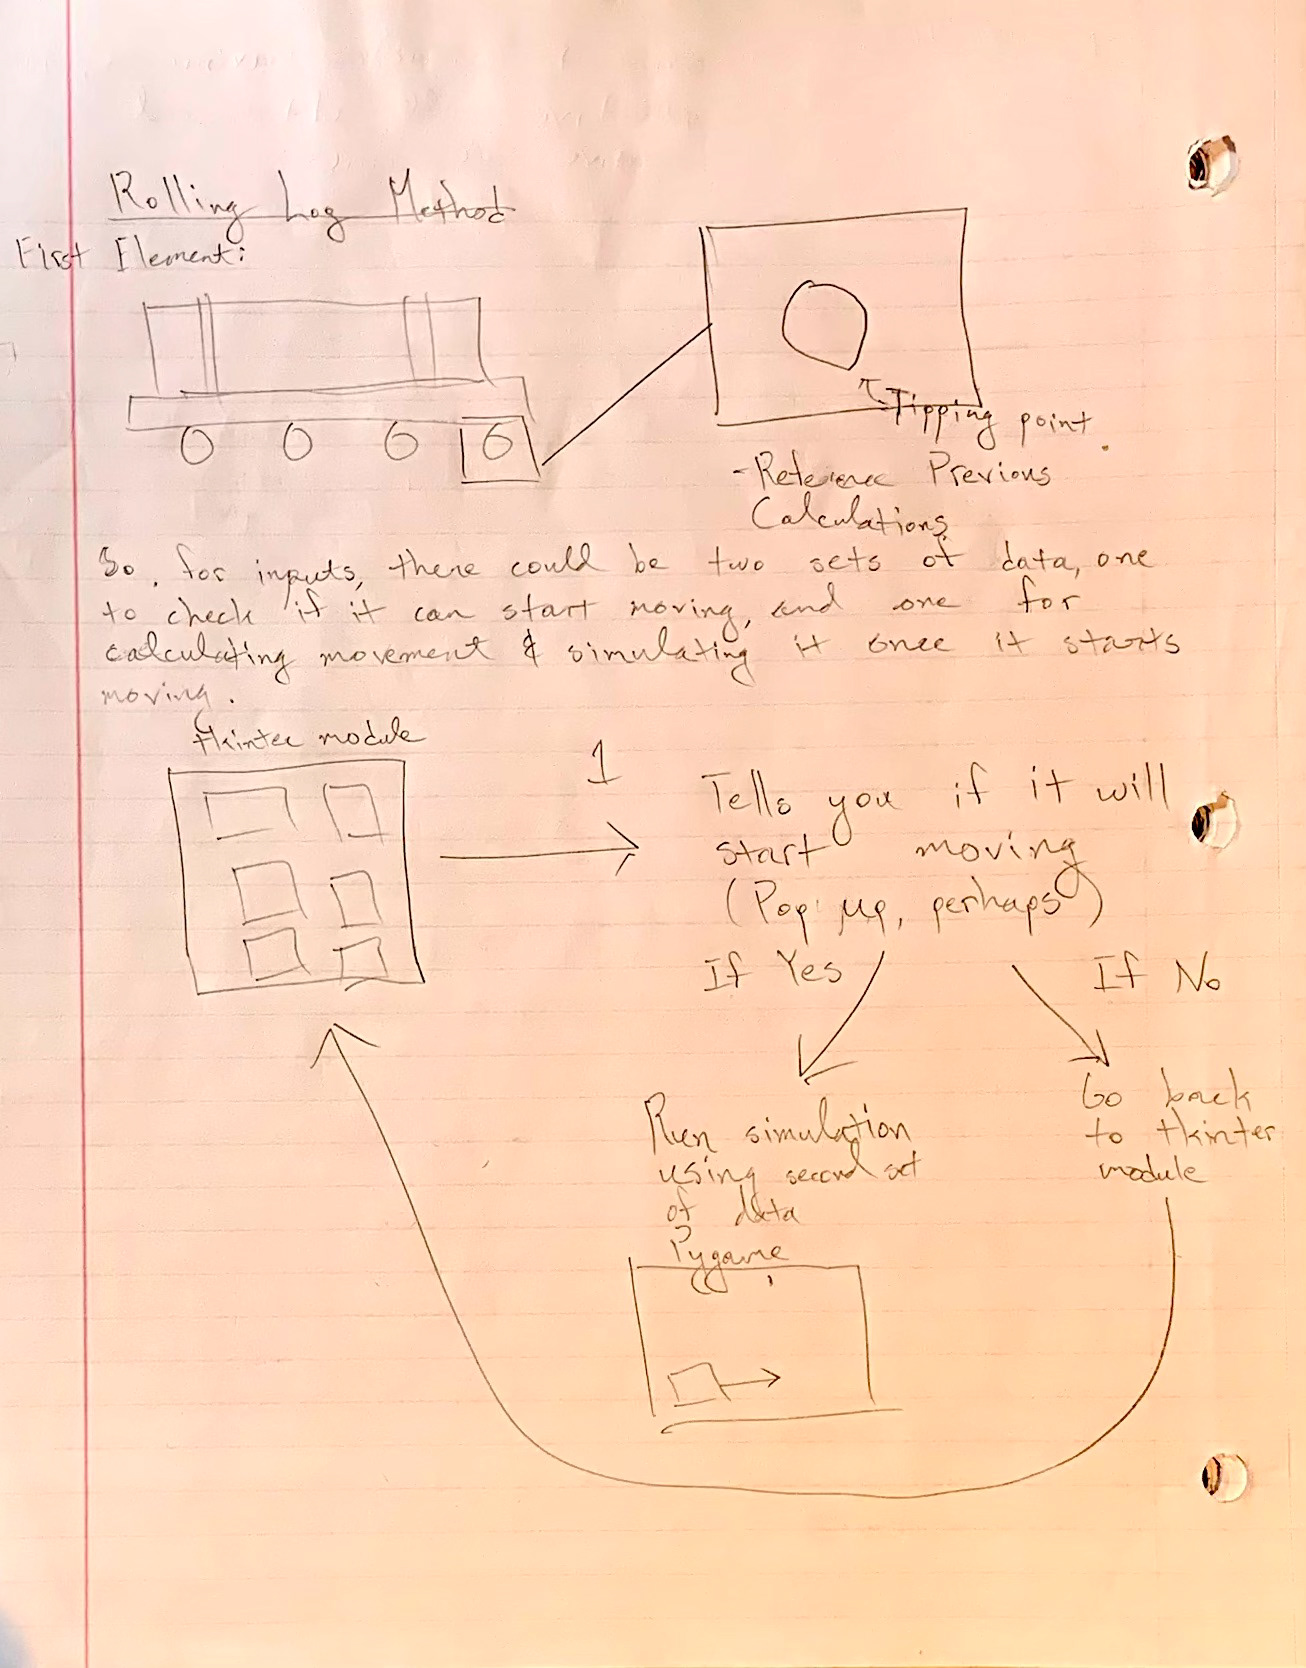 Rolling Log Method
First Element:
Tipping point
- Reference Previous
Calculations
So, for inputs, there could be two sets of data, one
to check if it can start moving, and one for
calculating movement & simulating it once it starts
moving.
tkinter module
1
Tells you if it will
start moving
(Pop up, perhaps)
If Yes
If No
Go back
to tkinter
module
Run simulation
using second set
of data
Pygame